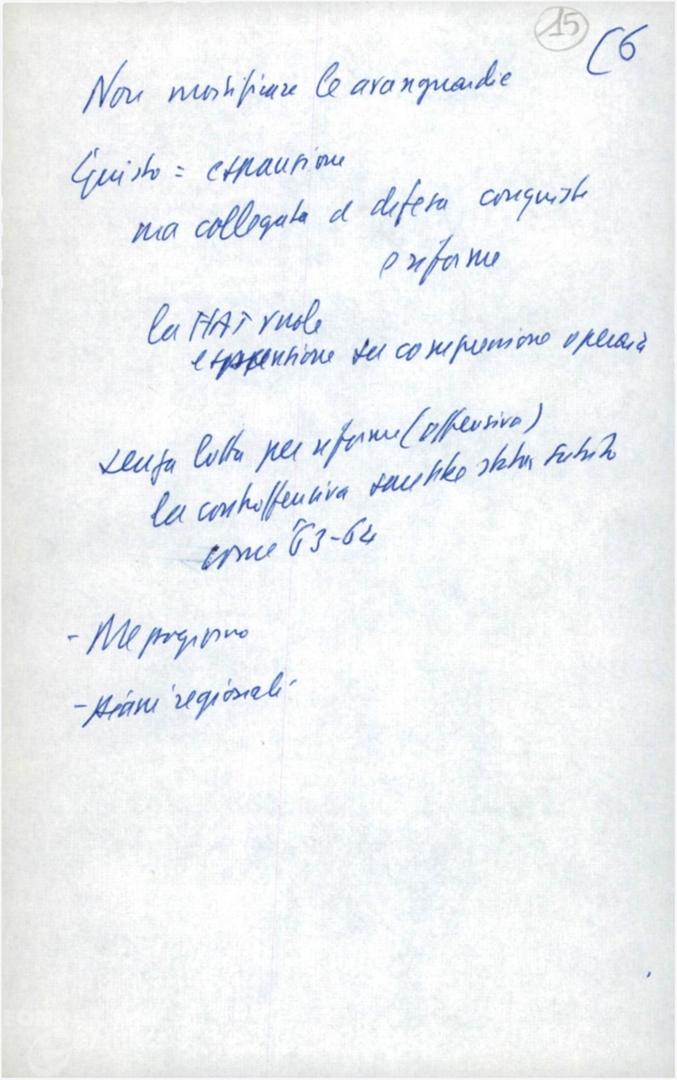 15
(6
Non mortificare le avanguardie
Giusto = espansione
ma collegata a difesa conquiste
e riforme
la FIAT vuole
espansione su compressione operaia
senza lotta per riforme (offensiva)
la controffensiva subito
come 63-64
- Mezzogiorno
- piani regionali